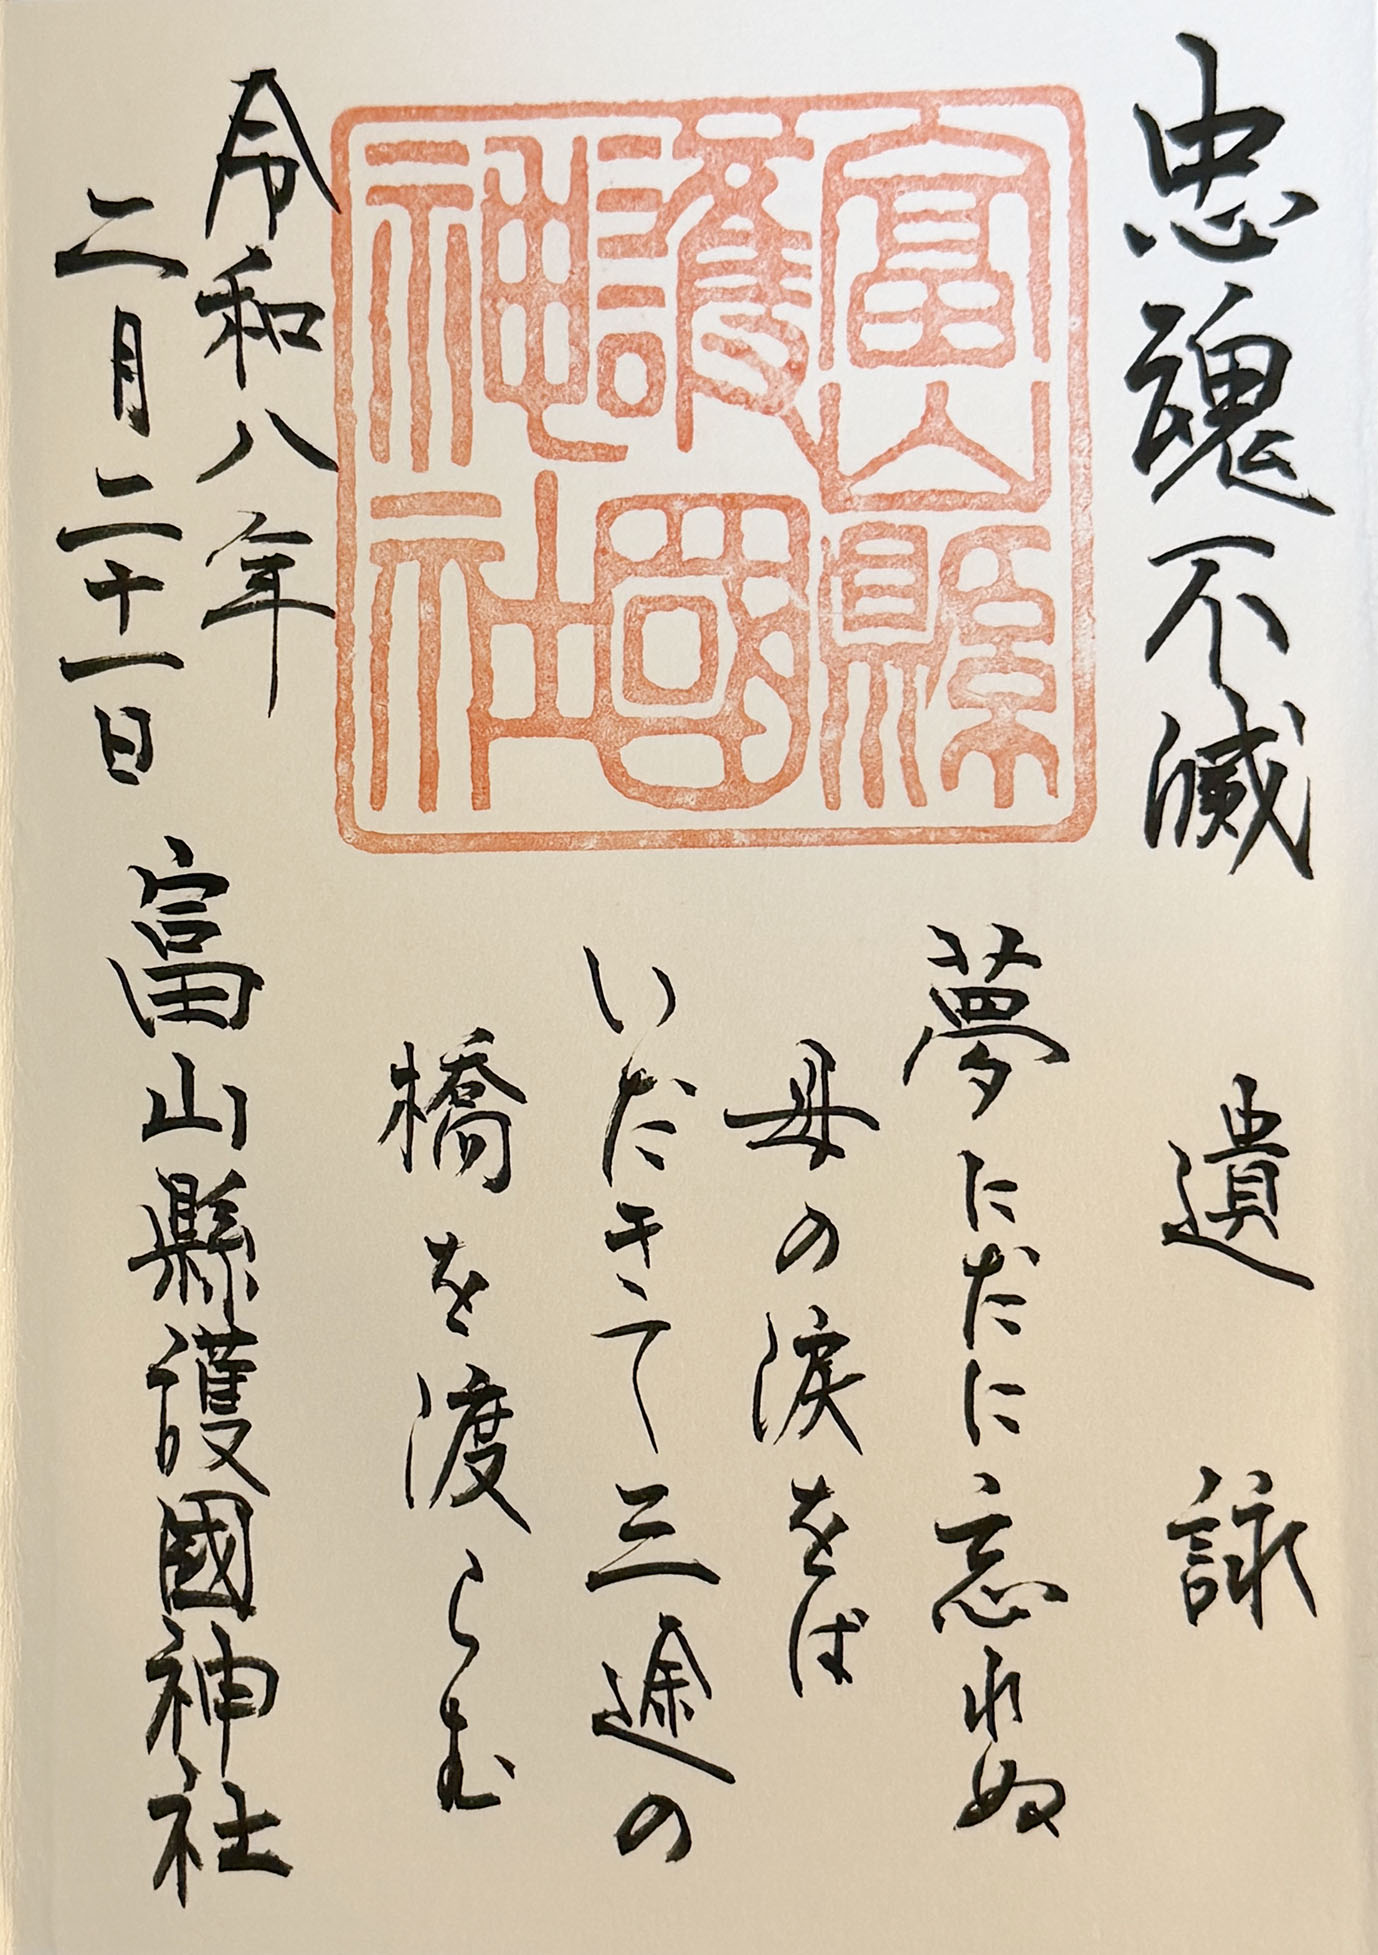 忠魂不滅
遺詠
夢にだに忘れぬ
母の涙をば
いだきて三途の
橋を渡らむ
富山縣護國神社
令和八年
二月二十一日
富山縣護國神社